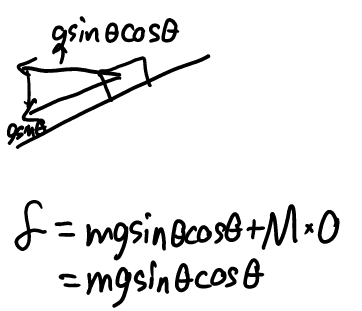 gsinθcosθ
gsinθ
f = mgsinθcosθ+M×0
=mgsinθcosθ